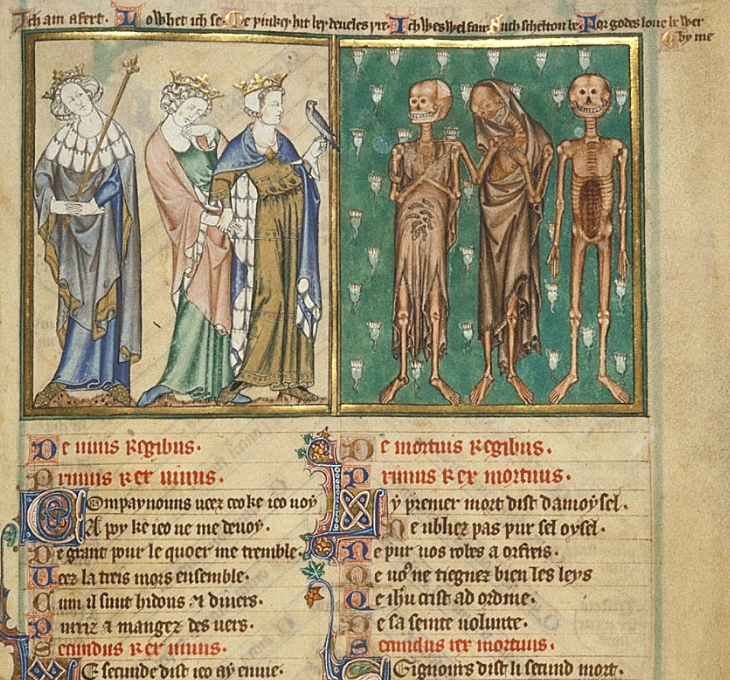 Ich am afert. Lo whet ich se. Me þinkeþ hit bey deueles þre. Ich wes wel fair. Such scheltou be. For godes loue be wer
by me
De uiuis regibus.
Primus rex uiuus.
Compaynouns ueez ceo ke ieo uoy
A poy ke ieo ne me deuoy.
De grant pour le quoer me tremble.
Ueez la treis mors ensemble.
Cum il sunt hidous & diuers.
Purriz & mangez des uers.
Secundus rex uiuus.
Le secunde dist ieo ay enuie.
De mortuis regibus.
Primus rex mortuus.
Ly premer mort dist damoysel.
Ne ubliez pas pur sel oysel.
Ne pur uos robes a orfreis.
Qe uoꝰ ne tiegnez bien les leys
Qe ihu crist ad ordine.
De sa seinte uolunte.
Secundus rex mortuus.
Seignours dist li secund mort.